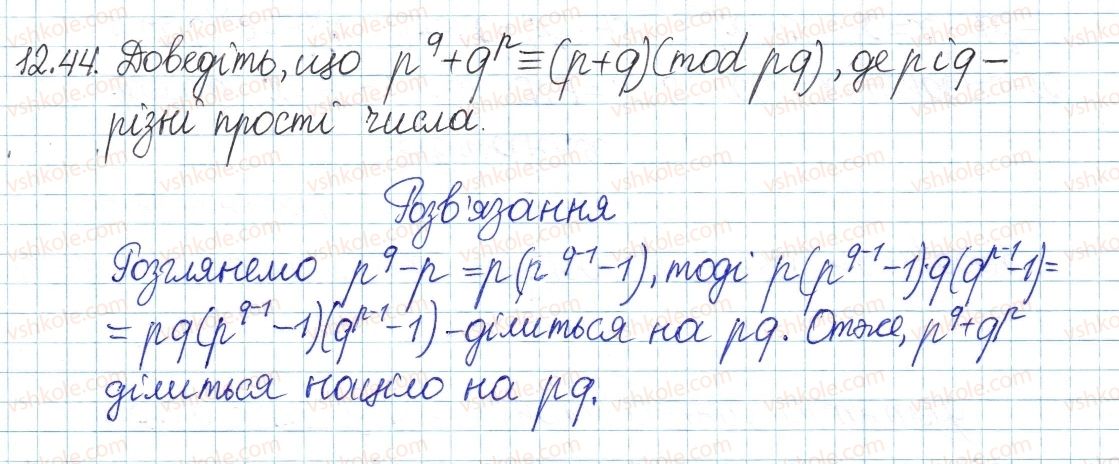 12.44. Доведіть, що p^q + q^p ≡ (p+q)(mod pq), де p і q –
різні прості числа.
Розв'язання
Розглянемо p^q – p = p(p^(q-1) – 1), тоді p(p^(q-1) – 1)·q(q^(p-1) – 1) =
= pq(p^(q-1) – 1)(q^(p-1) – 1) – ділиться на pq. Отже, p^q + q^p
ділиться націло на pq.